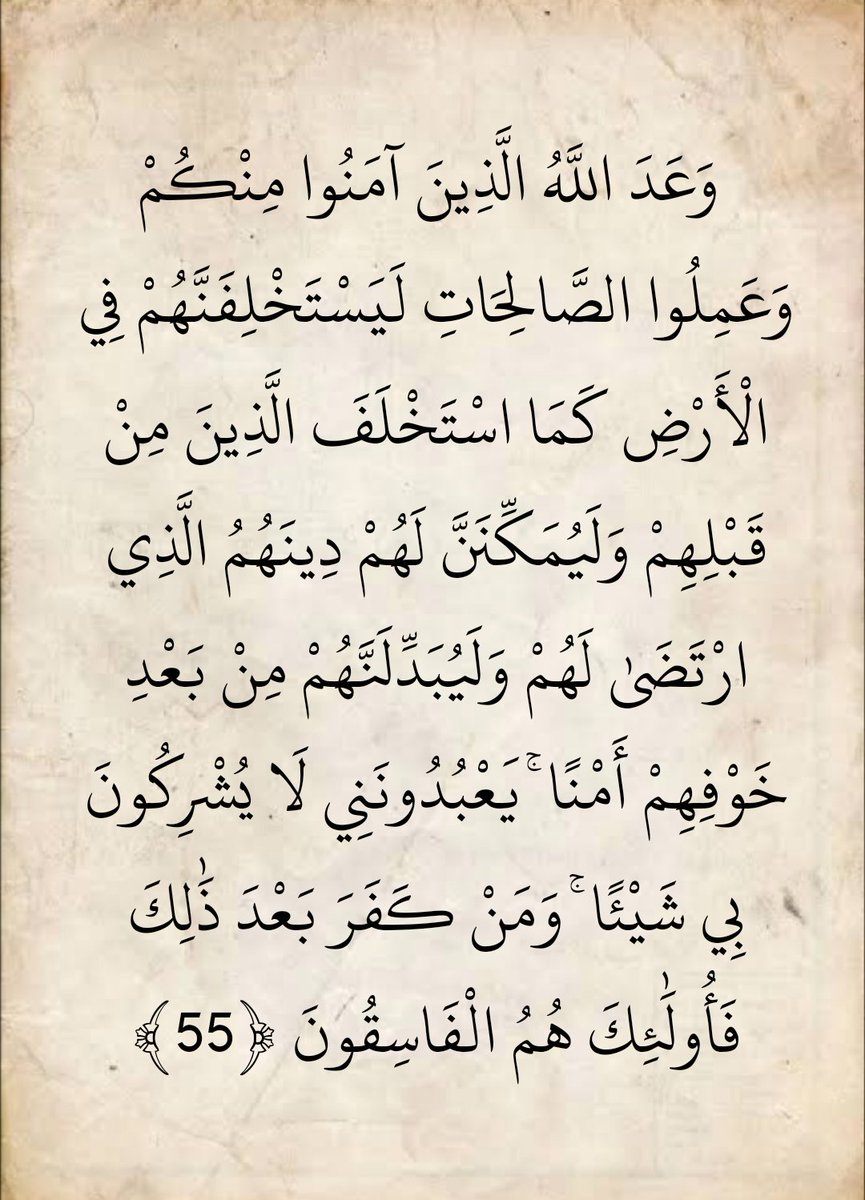 وَعَدَ اللَّهُ الَّذِينَ آمَنُوا مِنْكُمْ
وَعَمِلُوا الصَّالِحَاتِ لَيَسْتَخْلِفَنَّهُمْ فِي
الْأَرْضِ كَمَا اسْتَخْلَفَ الَّذِينَ مِنْ
قَبْلِهِمْ وَلَيُمَكِّنَنَّ لَهُمْ دِينَهُمُ الَّذِي
ارْتَضَىٰ لَهُمْ وَلَيُبَدِّلَنَّهُمْ مِنْ بَعْدِ
خَوْفِهِمْ أَمْنًا ۚ يَعْبُدُونَنِي لَا يُشْرِكُونَ
بِي شَيْئًا ۚ وَمَنْ كَفَرَ بَعْدَ ذَٰلِكَ
فَأُولَٰئِكَ هُمُ الْفَاسِقُونَ ﴿55﴾